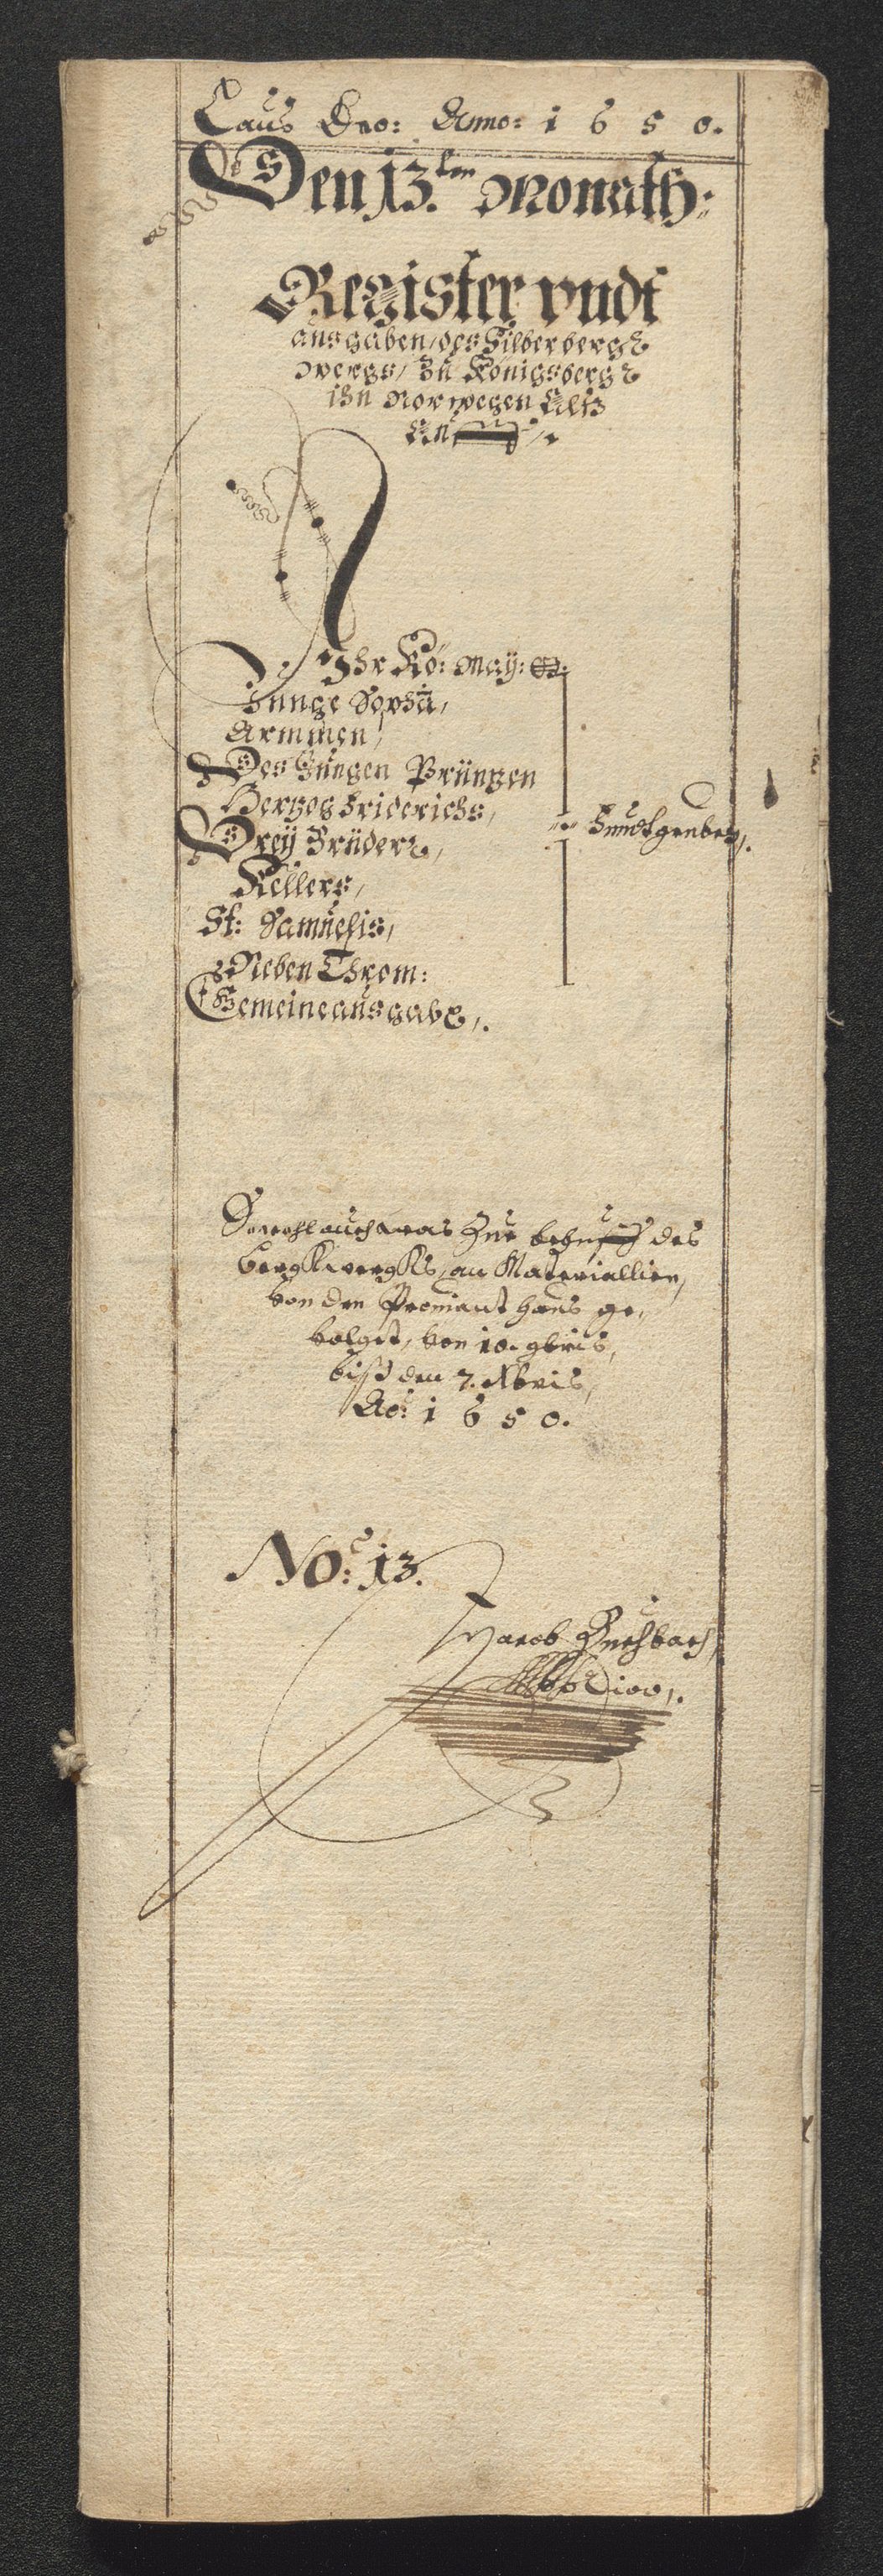 Laus Deo: Anno: 1 6 5 0.
Den 13.ten Monath:
Register vndt
ausgaben, des Silberbergk
wergs, Zu Königsbergk
ihn Norwegen Alß
An
Ihr Kö: May:
Junge Sophia,
Armmen,
Des Jungen Prüntzen
Hertzog Friderichs,
Drey Brüder,
Kellers,
St: Samuelis,
Neben Throm:
Fundtgruben,.
Gemeine ausgabe,.
Sowohl auch was Zur behuff des
BergKwergKs, an Materiallien,
von den Proviant haus ge,
volget, von 10. 9bris,
biß den 7. Xbris,
Ao: 1 6 5 0.
No: 13.
Jacob